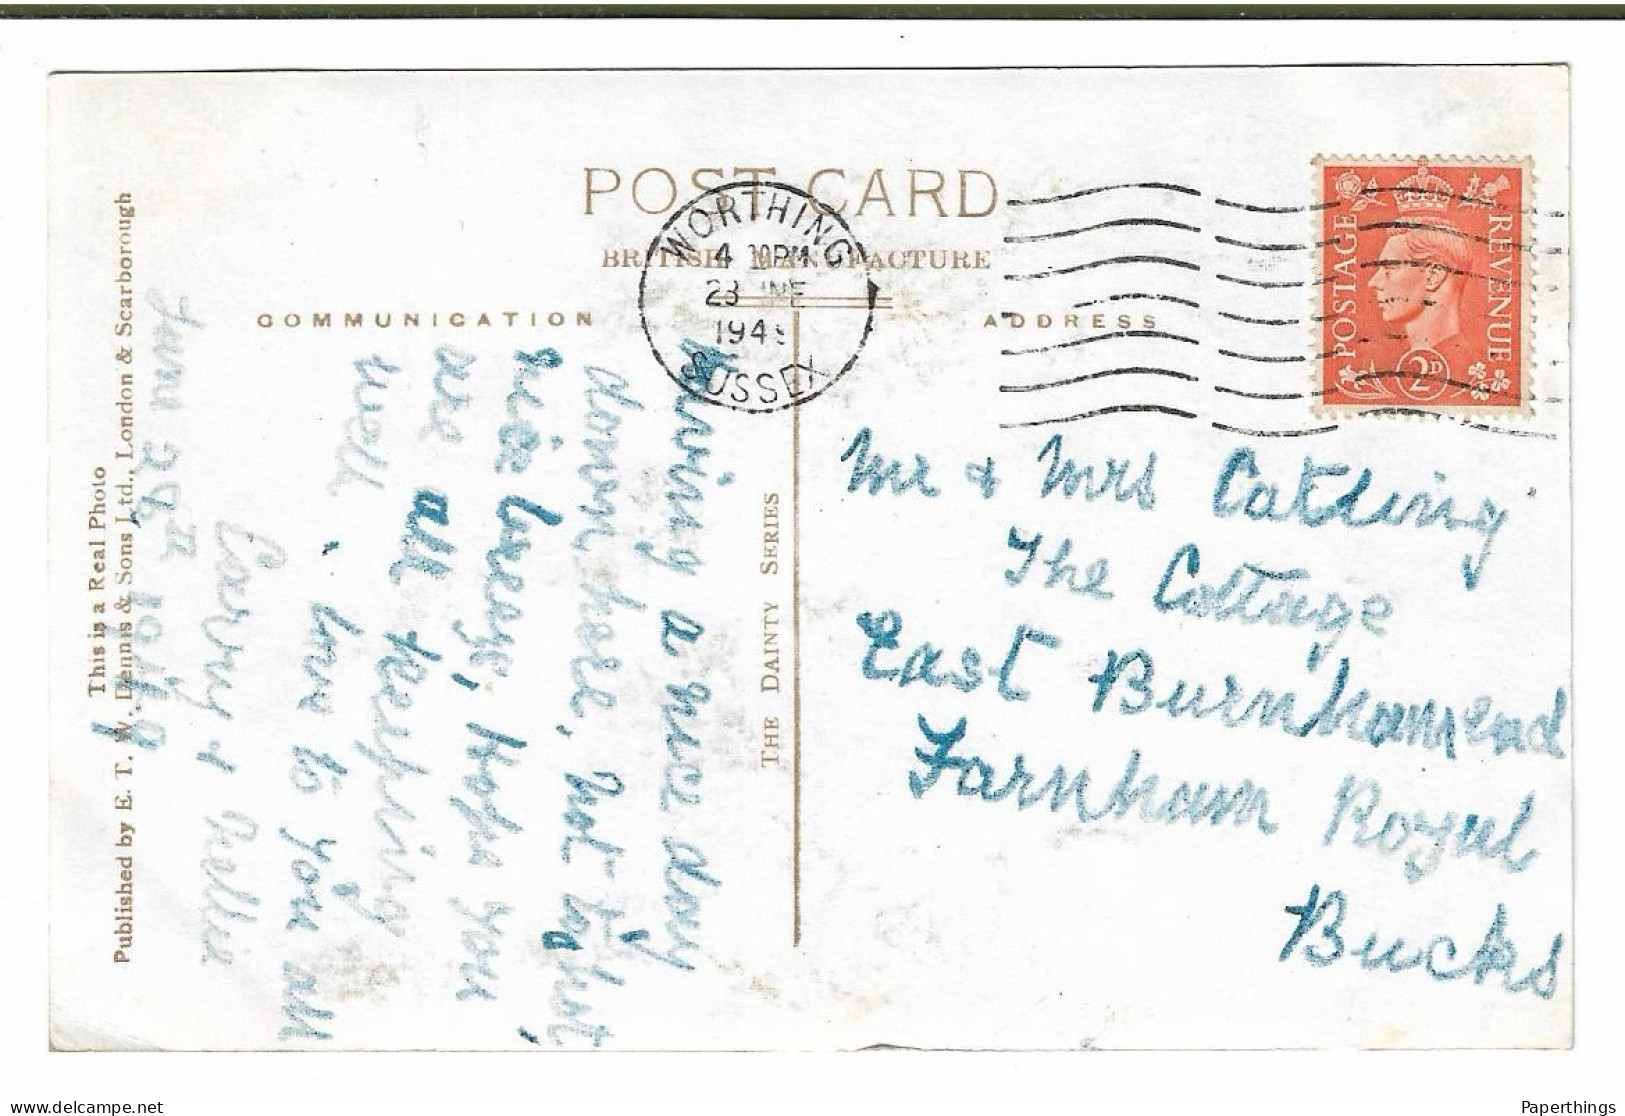 POST CARD
BRITISH MANUFACTURE
COMMUNICATION
ADDRESS
WORTHING
4 30PM
23 JNE
194
SUSSEX
POSTAGE
REVENUE
2D
Having a nice day
down here, not to hot,
nice breeze, Hope you
are all keeping
well. Luv to you all
& Nellie
June
Mr & Mrs Catling
The Cottage
East Burnhamend
Farnham Royal
Bucks
THE DAINTY SERIES
This is a Real Photo
Published by E. T. W. Dennis & Sons Ltd., London & Scarborough
delcampe.net
Paperthings